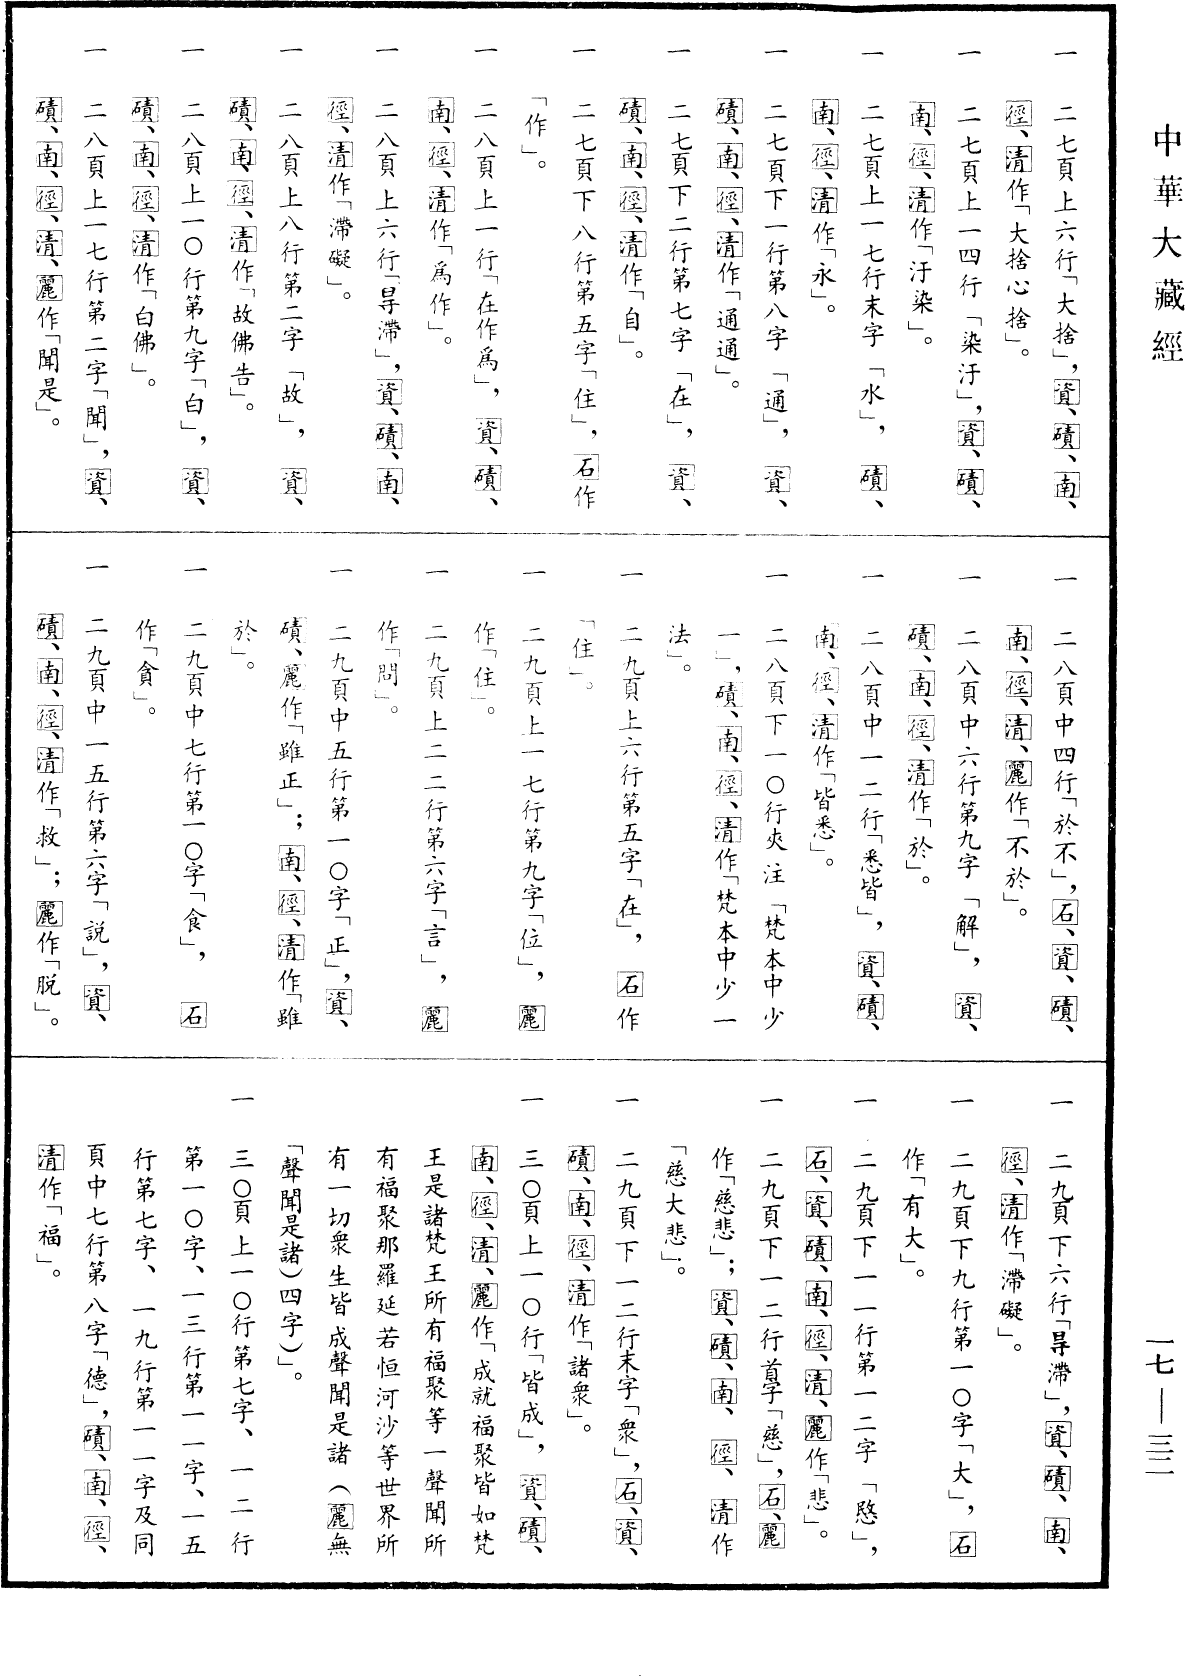 中華大藏經
一 二七頁上六行「大捨」，資、磧、南、
徑、清作「大捨心捨」。
一 二七頁上一四行「染汙」，資、磧、
南、徑、清作「汙染」。
一 二七頁上一七行末字「水」，磧、
南、徑、清作「永」。
一 二七頁下一行第八字「通」，資、
磧、南、徑、清作「通通」。
一 二七頁下二行第七字「在」，資、
磧、南、徑、清作「自」。
一 二七頁下八行第五字「住」，石作
「作」。
一 二八頁上一行「在作爲」，資、磧、
南、徑、清作「爲作」。
一 二八頁上六行「㝵滯」，資、磧、南、
徑、清作「滯礙」。
一 二八頁上八行第二字「故」，資、
磧、南、徑、清作「故佛告」。
一 二八頁上一〇行第九字「白」，資、
磧、南、徑、清作「白佛」。
一 二八頁上一七行第二字「聞」，資、
磧、南、徑、清、麗作「聞是」。
一 二八頁中四行「於不」，石、資、磧、
南、徑、清、麗作「不於」。
一 二八頁中六行第九字「解」，資、
磧、南、徑、清作「於」。
一 二八頁中一二行「悉皆」，資、磧、
南、徑、清作「皆悉」。
一 二八頁下一〇行夾注「梵本中少
一」，磧、南、徑、清作「梵本中少一
法」。
一 二九頁上六行第五字「在」，石作
「住」。
一 二九頁上一七行第九字「位」，麗
作「住」。
一 二九頁上二二行第六字「言」，麗
作「問」。
一 二九頁中五行第一〇字「正」，資、
磧、麗作「雖正」；南、徑、清作「雖
於」。
一 二九頁中七行第一〇字「食」，石
作「貪」。
一 二九頁中一五行第六字「説」，資、
磧、南、徑、清作「救」；麗作「脱」。
一 二九頁下六行「㝵滯」，資、磧、南、
徑、清作「滯礙」。
一 二九頁下九行第一〇字「大」，石
作「有大」。
一 二九頁下一一行第一二字「愍」，
石、資、磧、南、徑、清、麗作「悲」。
一 二九頁下一二行首字「慈」，石、麗
作「慈悲」；資、磧、南、徑、清作
「慈大悲」。
一 二九頁下一二行末字「衆」，石、資、
磧、南、徑、清作「諸衆」。
一 三〇頁上一〇行「皆成」，資、磧、
南、徑、清、麗作「成就福聚皆如梵
王是諸梵王所有福聚等一聲聞所
有福聚那羅延若恒河沙等世界所
有一切衆生皆成聲聞是諸（麗無
「聲聞是諸）四字）」。
一 三〇頁上一〇行第七字、一二行
第一〇字、一三行第一一字、一五
行第七字、一九行第一一字及同
頁中七行第八字「德」，磧、南、徑、
清作「福」。
一七—三二